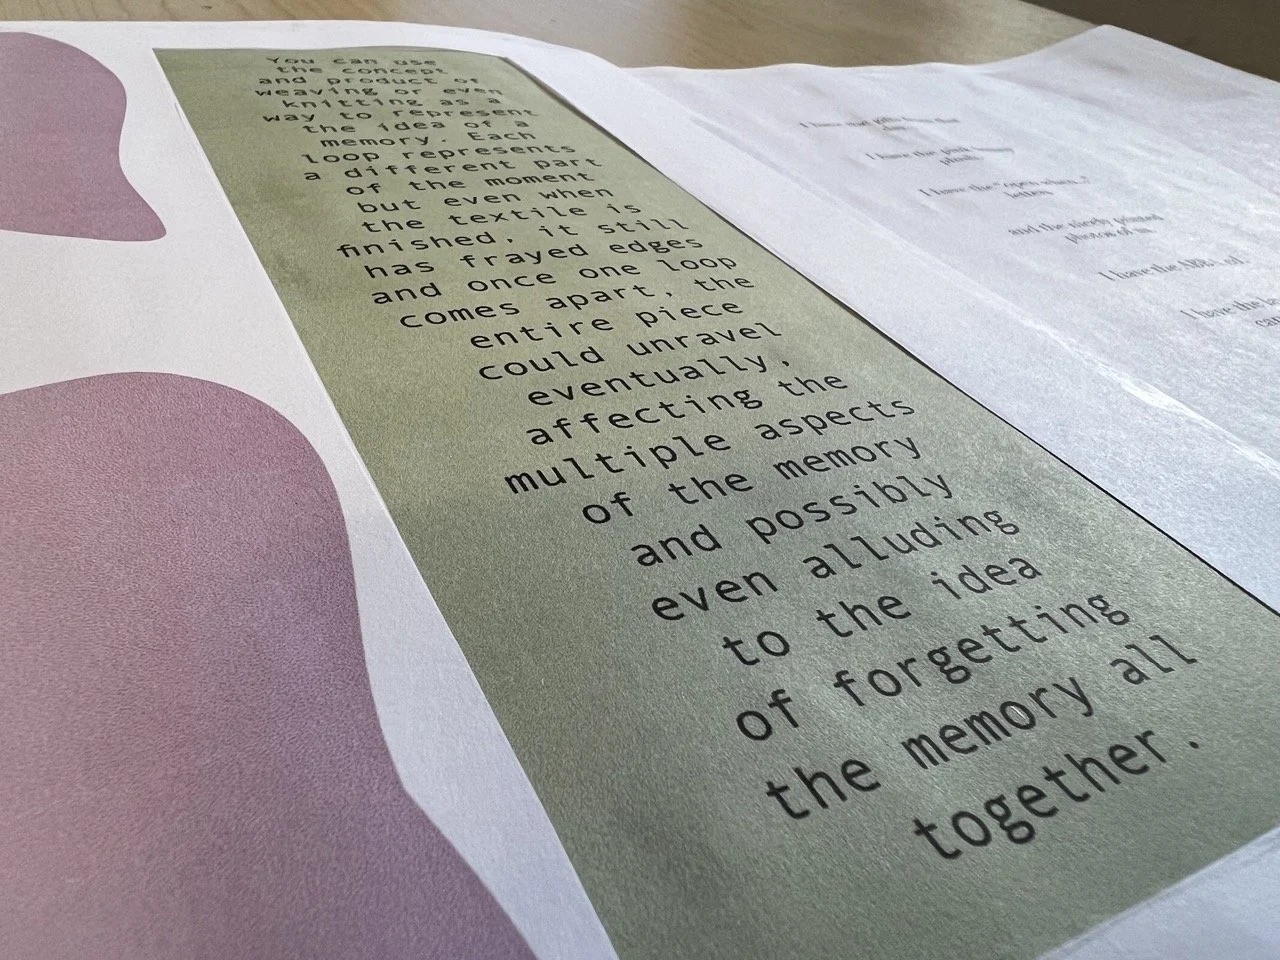 You can use
the concept
and product of
weaving or even
knitting as a
way to represent
the idea of a
memory. Each
loop represents
a different part
of the moment
but even when
the textile is
finished, it still
has frayed edges
and once one loop
comes apart, the
entire piece
could unravel
eventually,
affecting the
multiple aspects
of the memory
and possibly
even alluding
to the idea
of forgetting
the memory all
together.
I have the pink
I have the "open when..."
letters
and the nicely printed
photos of us
I have the
I have the